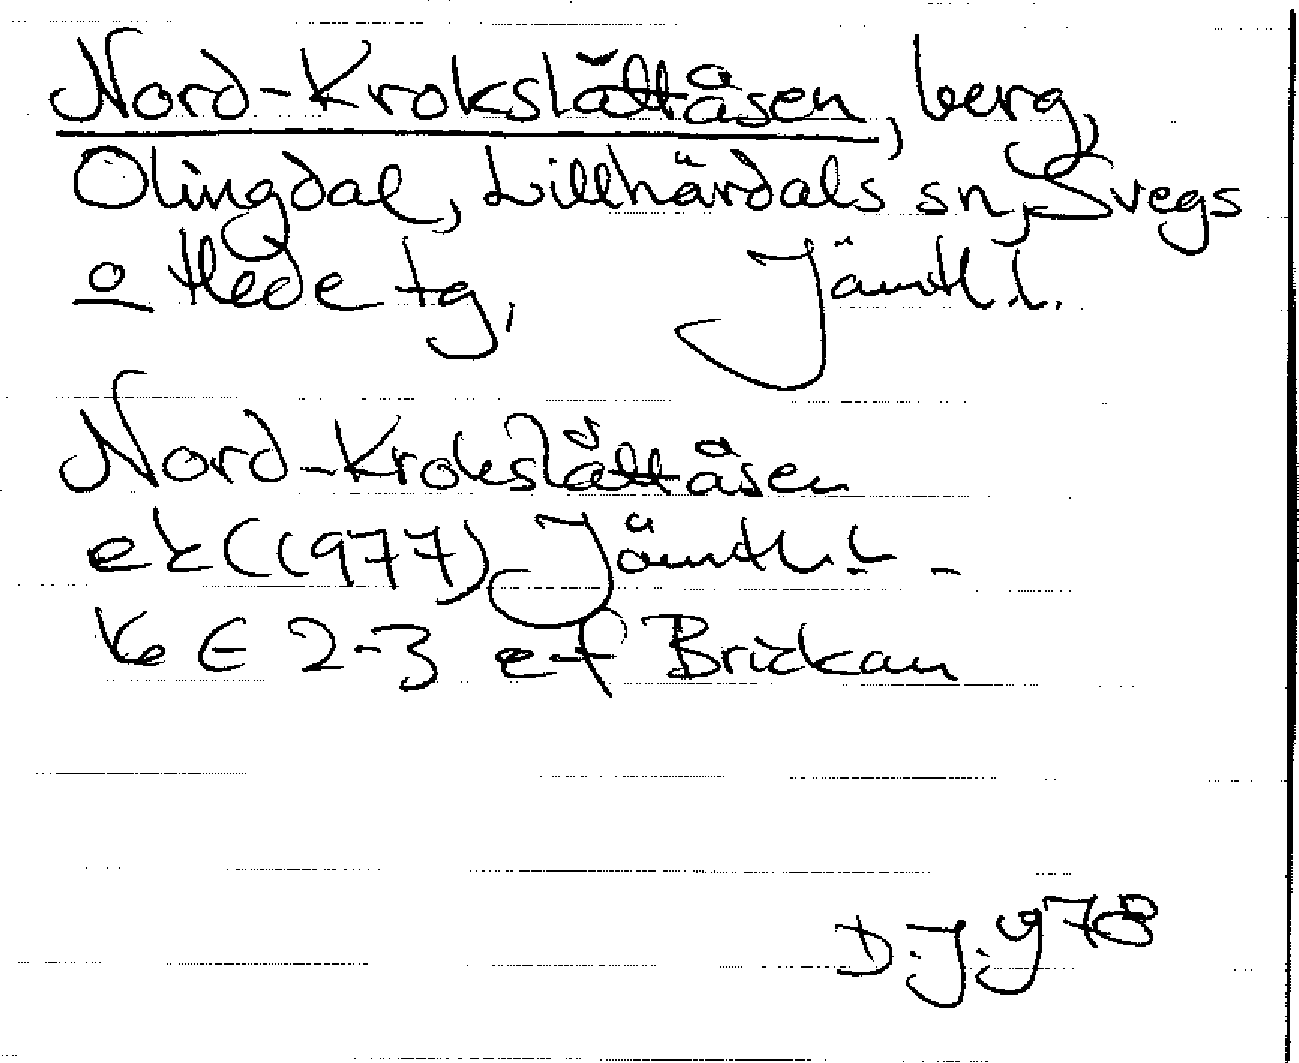 Nord-Krokslättåsen, berg,
Olingdal, Lillhärdals sn, Svegs
o Hede tg, Jämtl.l.
Nord-Krokslåttåsen
ek (1977) Jämtl.l.
16 E 2-3 ef Brickan
D.J. 978